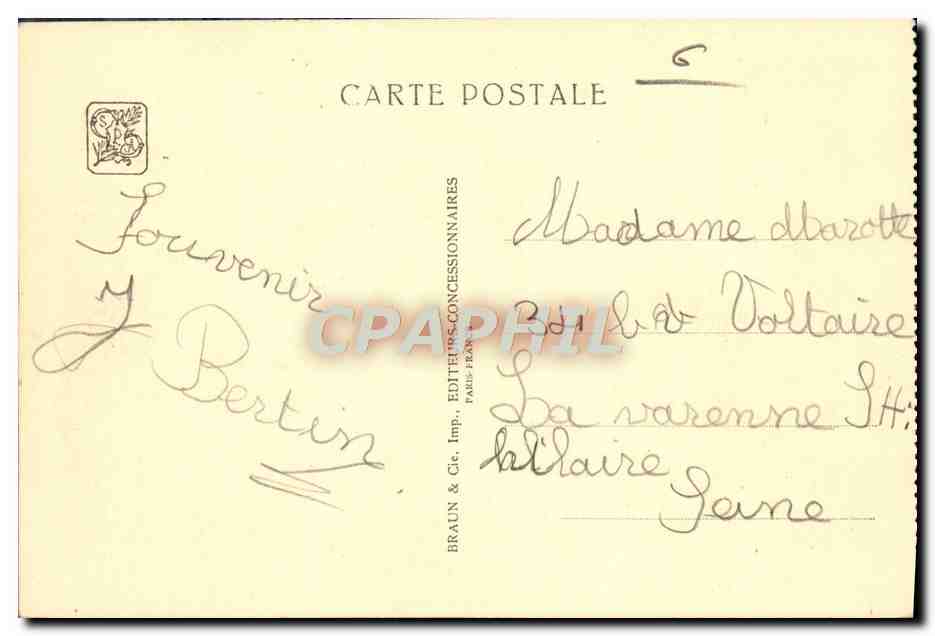 6
CARTE POSTALE
S
P
A
Souvenir
J Bertin
BRAUN & Cie, Imp., EDITEURS-CONCESSIONNAIRES
PARIS-FRANCE
CPAPHIL
Madame Marotte
Voltaire
La varenne St:
hilaire
Seine